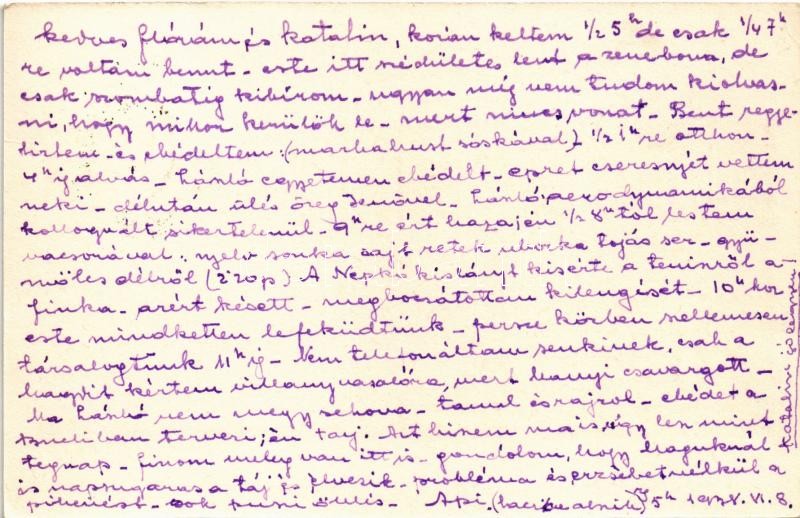 kedves flórám és katalin, korán keltem 1/2 5h de csak 1/4 7h
re voltam bennt - este itt szédületes lent a zenebona, de
csak szombatig kibírom - ugyan míg nem tudom kiolvas-
ni, hogy mikor kerülök le - mert nincs vonat - Bent regge-
liztem - és ebédeltem (marhahust sóskával) - 1/2 1h re otthon -
4h ig alvás - László egyetemen ebédelt - epret cseresnyét vettem
neki - délután ülés öreg Jenővel - László aerodynamikából
kollokvált sikertelenül - 9h re ért haza, én 1/2 8h tól lestem
vacsorával: nyelv sonka sajt retek uborka tojás ser - gyü-
mölcs délről (2.20p) A kislányt kisérte a teniszről a
finka - azért késett - megbocsátottam kilengését - 10h kor
este mindketten lefeküdtünk - persze közben szellemesen
társalogtunk 11h ig - Nem telefonáltam senkinek, csak a
kértem villanyvasalóra, mert csavargott -
Ma László nem megy sehova - tanul és rajzol - ebédet a
tervezi, én Azt hiszem ma is úgy lesz mint
tegnap - finom meleg van itt is - gondolom, hogy maguknál
is napsugaras a táj és élvezik - probléma és erzsébet nélkül a
pihenést - sok puszi ölelés - Api. 5h 1938. VI. 8.
katalini